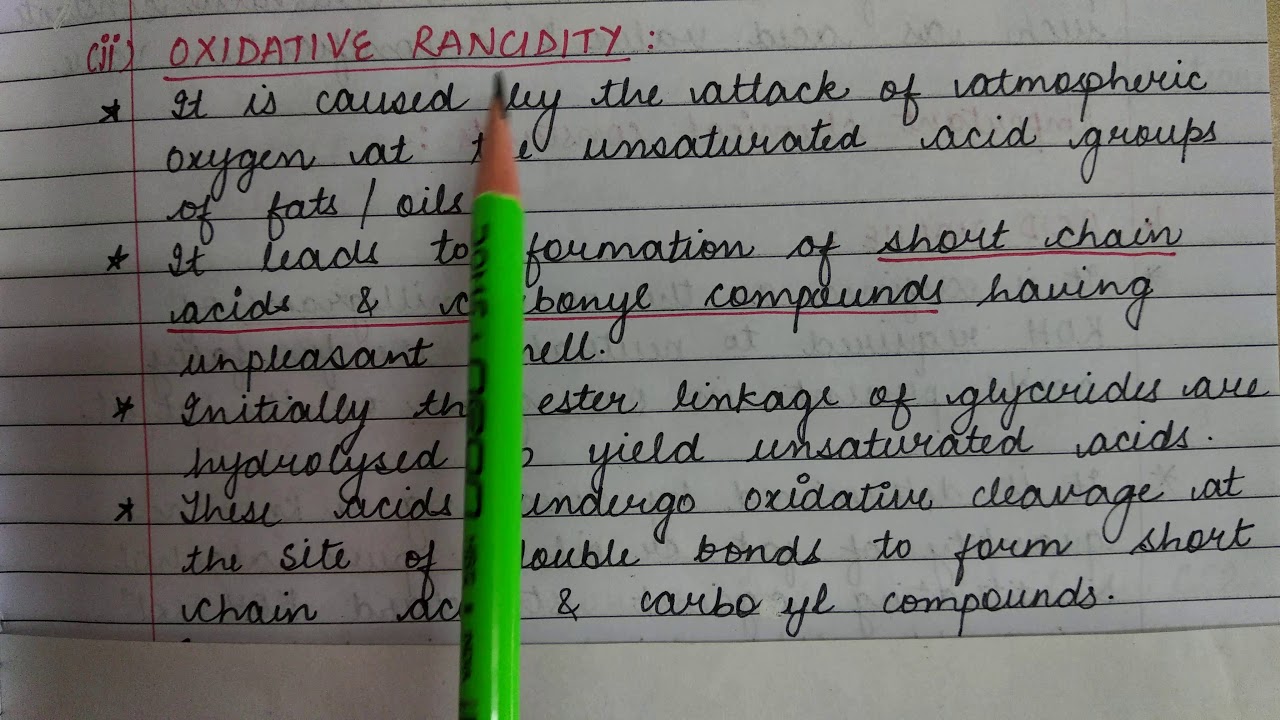 (ii) OXIDATIVE RANCIDITY :
* It is caused by the attack of atmospheric
oxygen at the unsaturated acid groups
of fats / oils
* It leads to formation of short chain
acids & carbonyl compounds having
unpleasant smell.
* Initially the ester linkage of glycerides are
hydrolysed to yield unsaturated acids.
* These acids undergo oxidative cleavage at
the site of double bonds to form short
chain acids & carbo yl compounds.